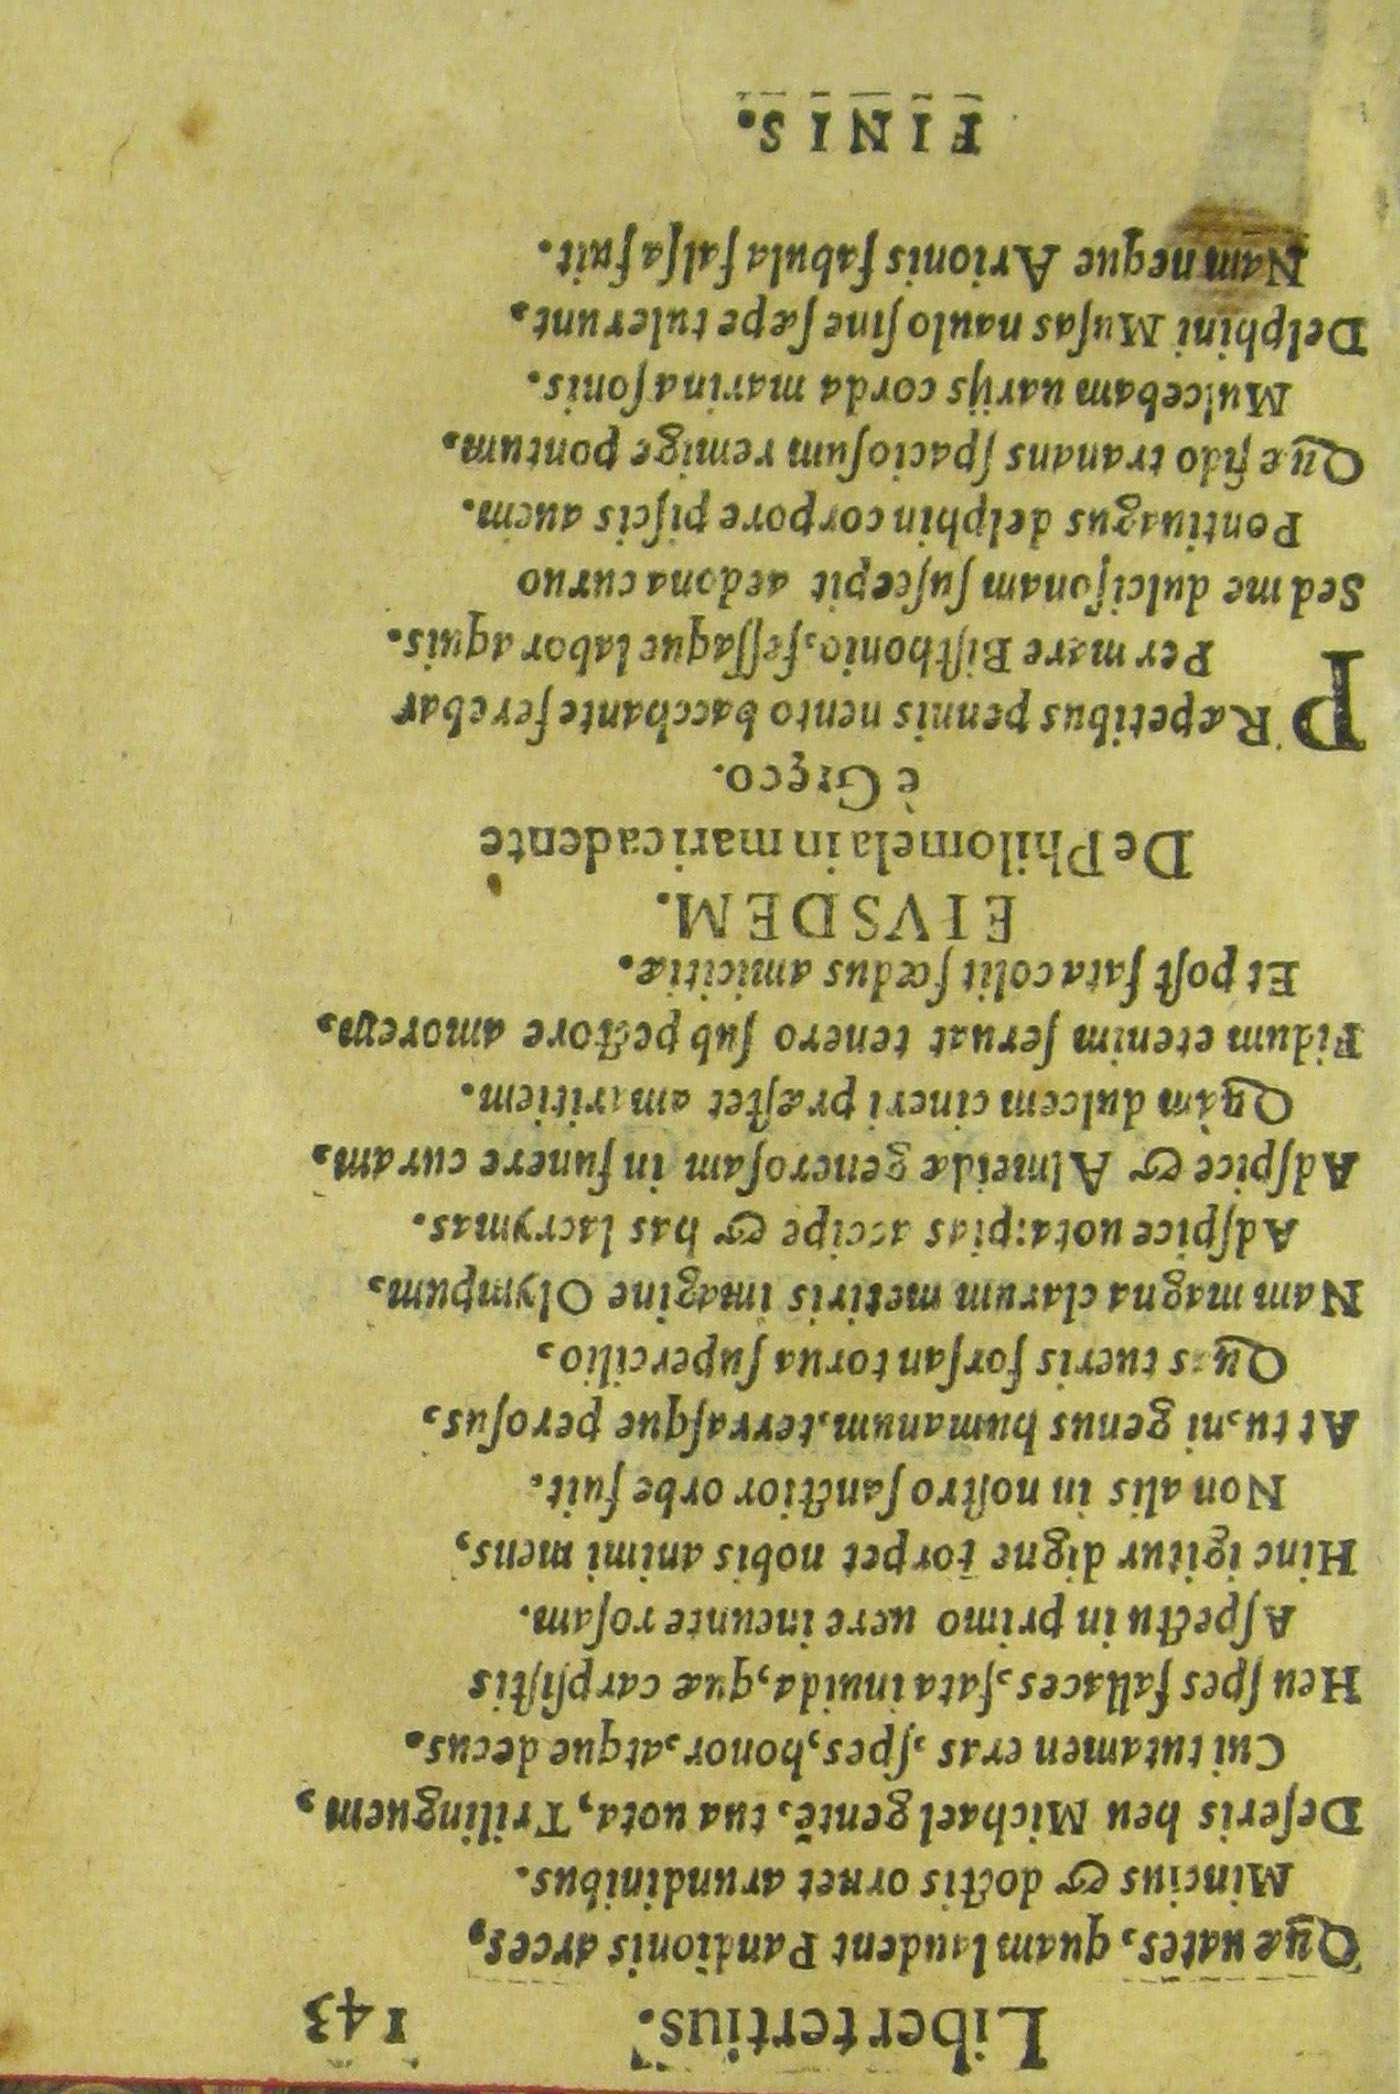 Liber tertius. 143
Quæ uates, quam laudent Pandionis arces,
Mincius & doctis ornet arundinibus.
Deseris heu Michael gentē, tua uota, Trilinguem,
Cui tu tamen eras, spes, honor, atque decus.
Heu spes fallaces, fata inuida, quæ carpsistis
Aspectu in primo uere ineunte rosam.
Hinc igitur digne torpet nobis animi mens,
Non alis in nostro sanctior orbe fuit.
At tu, ni genus humanum, terrasque perosus,
Quas tueris forsan torua supercilio,
Nam magna clarum metiris imagine Olympum,
Adspice uota: pias accipe & has lacrymas.
Adspice & Almeidæ generosam in funere curam,
Quàm dulcem cineri præstet amiritiem.
Fidum etenim seruat tenero sub pectore amorem,
Et post fata colit fœdus amicitiæ.
EIVSDEM.
De Philomela in mari cadente
è Gręco.
PRæpetibus pennis uento bacchante ferebar
Per mare Bisthonio, fessaque labor aquis.
Sed me dulcisonam suscepit aedona curuo
Pontiuagus delphin corpore piscis auem.
Quæ fido tranans spaciosum remige pontum,
Mulcebam uarijs corda marina sonis.
Delphini Musas naulo sine sæpe tulerunt,
Nam neque Arionis fabula falsa fuit.
FINIS.